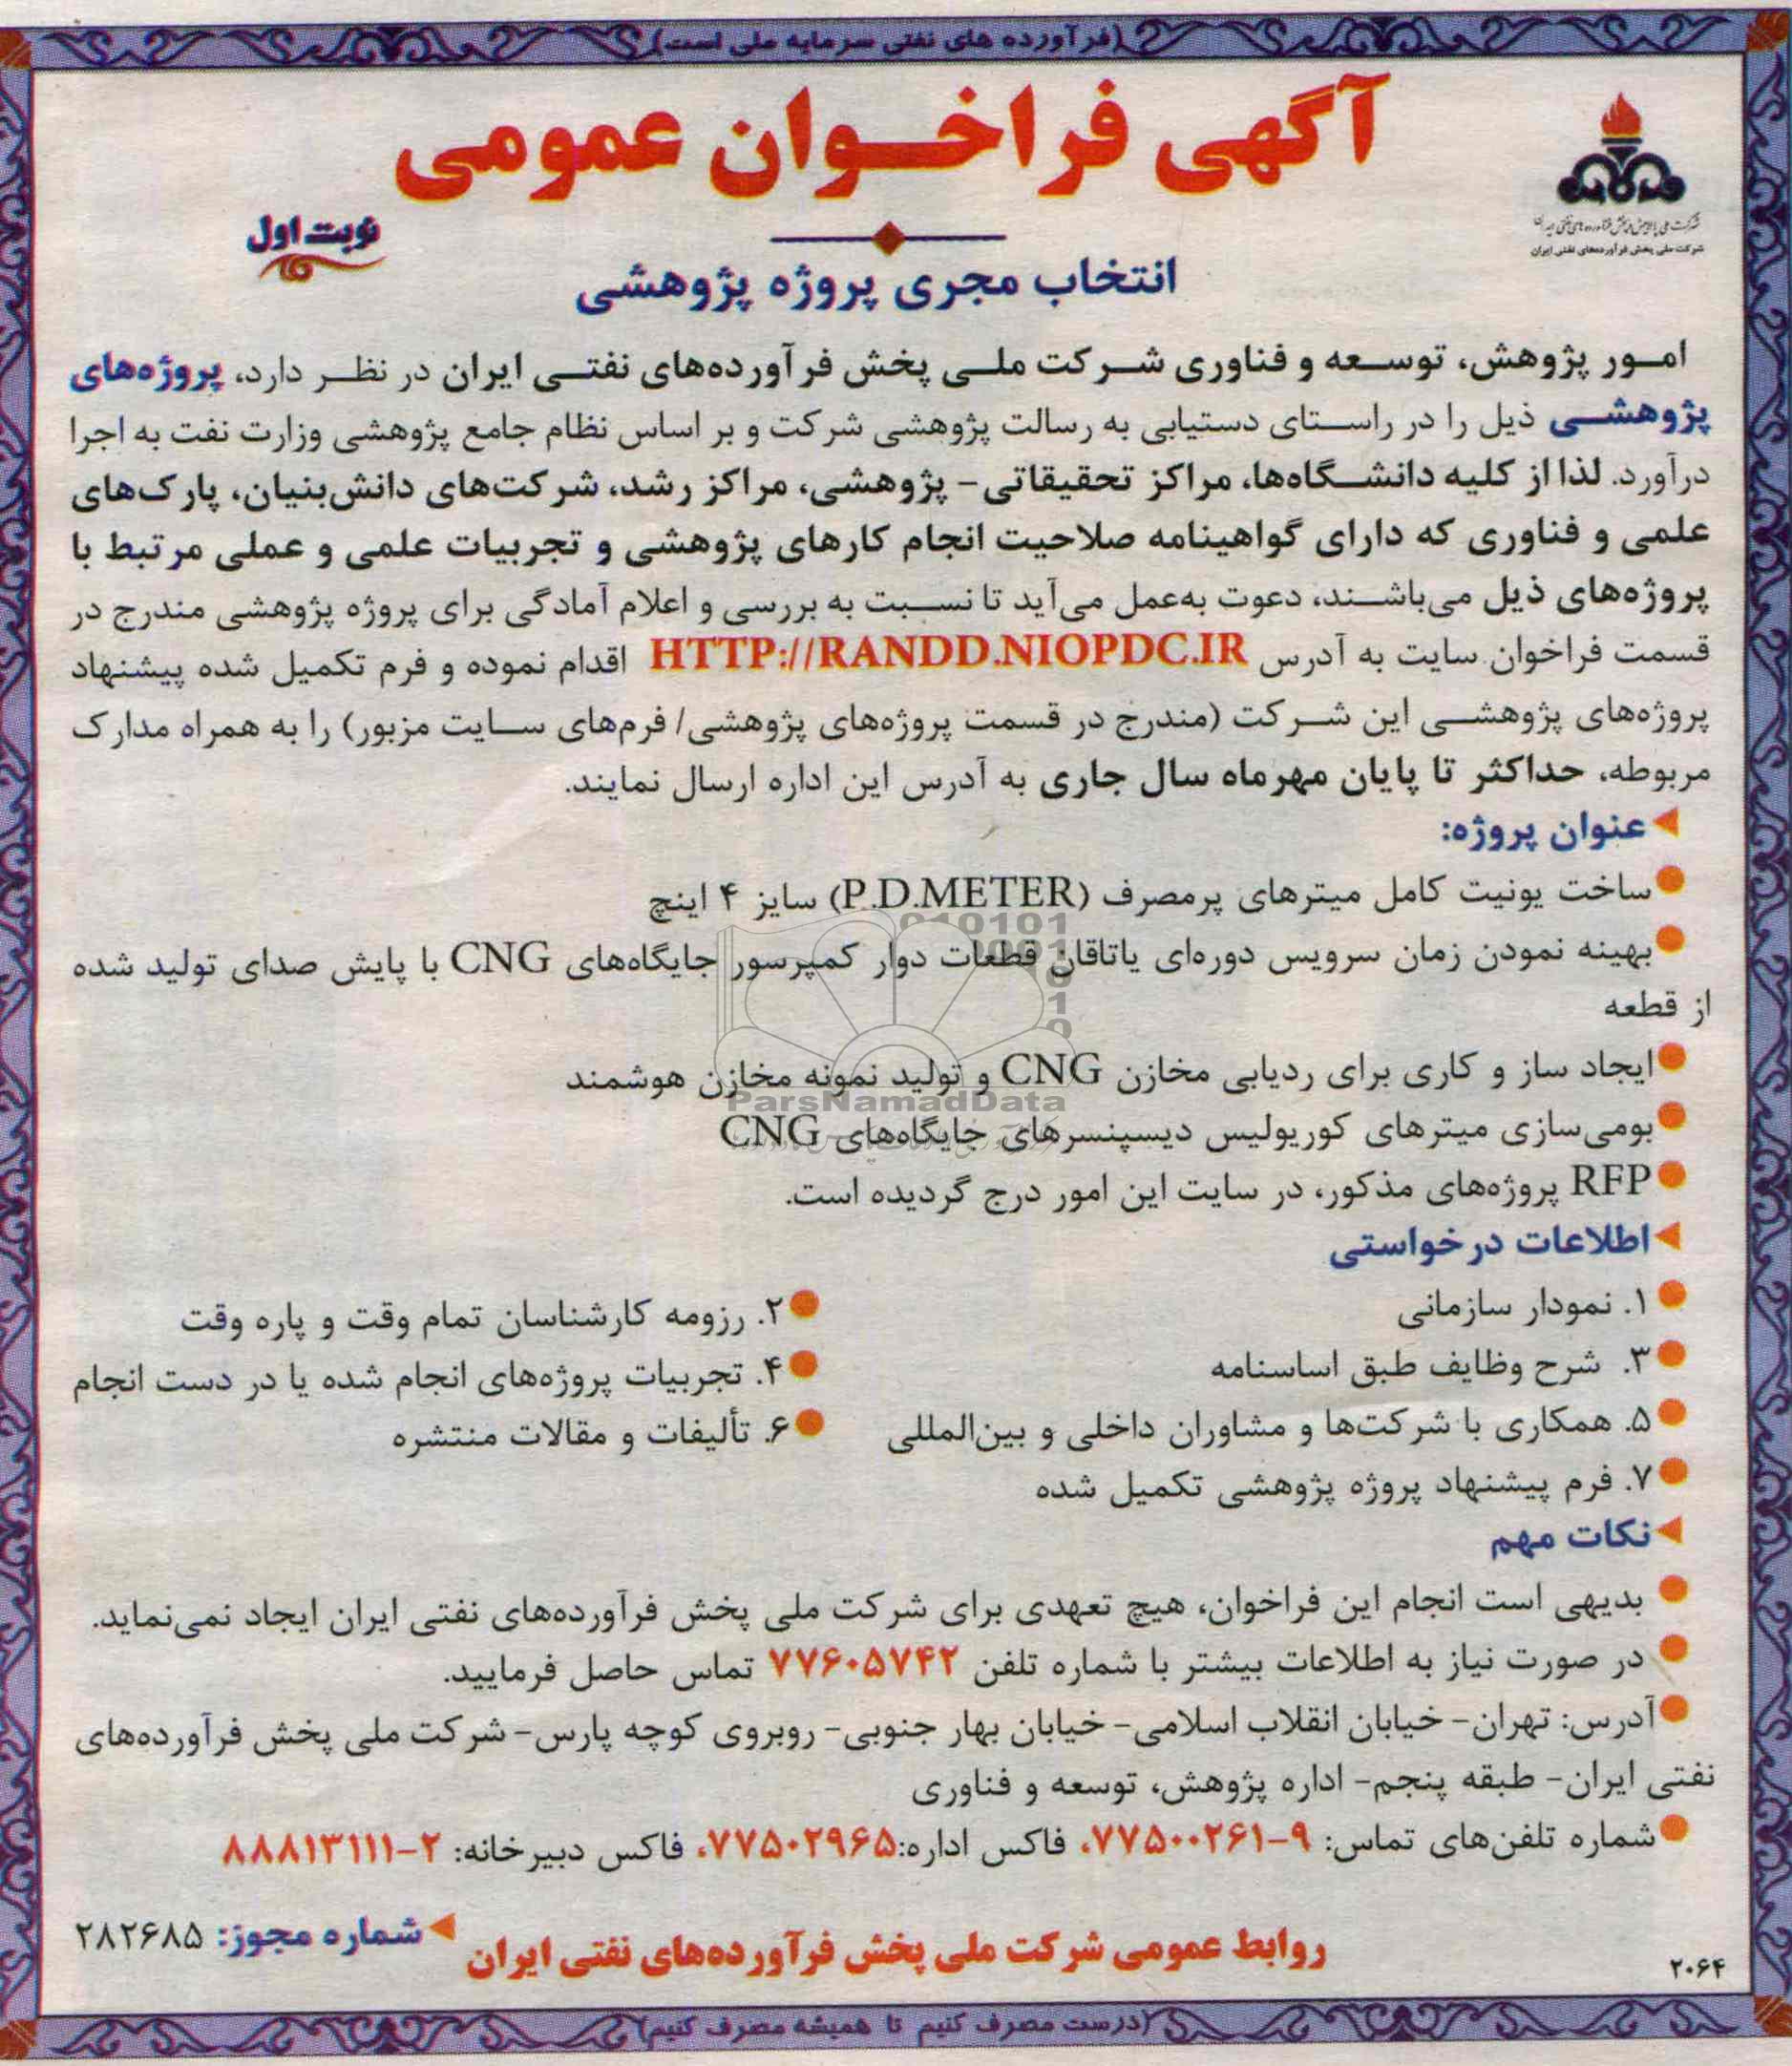 (فرآورده های نفتی سرمایه ملی است)
آگهی فراخوان عمومی
شرکت ملی پالایش و پخش فرآورده‌های نفتی ایران
شرکت ملی پخش فرآورده‌های نفتی ایران
نوبت اول
انتخاب مجری پروژه پژوهشی
امور پژوهش، توسعه و فناوری شرکت ملی پخش فرآورده‌های نفتی ایران در نظر دارد، پروژه‌های
پژوهشی ذیل را در راستای دستیابی به رسالت پژوهشی شرکت و بر اساس نظام جامع پژوهشی وزارت نفت به اجرا
درآورد. لذا از کلیه دانشگاه‌ها، مراکز تحقیقاتی- پژوهشی، مراکز رشد، شرکت‌های دانش‌بنیان، پارک‌های
علمی و فناوری که دارای گواهینامه صلاحیت انجام کارهای پژوهشی و تجربیات علمی و عملی مرتبط با
پروژه‌های ذیل می‌باشند، دعوت به‌عمل می‌آید تا نسبت به بررسی و اعلام آمادگی برای پروژه پژوهشی مندرج در
قسمت فراخوان سایت به آدرس HTTP://RANDD.NIOPDC.IR اقدام نموده و فرم تکمیل شده پیشنهاد
پروژه‌های پژوهشی این شرکت (مندرج در قسمت پروژه‌های پژوهشی/ فرم‌های سایت مزبور) را به همراه مدارک
مربوطه، حداکثر تا پایان مهرماه سال جاری به آدرس این اداره ارسال نمایند.
عنوان پروژه:
ساخت یونیت کامل میترهای پرمصرف (P.D.METER) سایز ۴ اینچ
بهینه نمودن زمان سرویس دوره‌ای یاتاقان قطعات دوار کمپرسور جایگاه‌های CNG با پایش صدای تولید شده
از قطعه
ایجاد ساز و کاری برای ردیابی مخازن CNG و تولید نمونه مخازن هوشمند
ParsNamadData
بومی‌سازی میترهای کوریولیس دیسپنسرهای جایگاه‌های CNG
RFP پروژه‌های مذکور، در سایت این امور درج گردیده است.
اطلاعات درخواستی
۱. نمودار سازمانی
۲. رزومه کارشناسان تمام وقت و پاره وقت
۳. شرح وظایف طبق اساسنامه
۴. تجربیات پروژه‌های انجام شده یا در دست انجام
۵. همکاری با شرکت‌ها و مشاوران داخلی و بین‌المللی
۶. تألیفات و مقالات منتشره
۷. فرم پیشنهاد پروژه پژوهشی تکمیل شده
نکات مهم
بدیهی است انجام این فراخوان، هیچ تعهدی برای شرکت ملی پخش فرآورده‌های نفتی ایران ایجاد نمی‌نماید.
در صورت نیاز به اطلاعات بیشتر با شماره تلفن ۷۷۶۰۵۷۴۲ تماس حاصل فرمایید.
آدرس: تهران- خیابان انقلاب اسلامی- خیابان بهار جنوبی- روبروی کوچه پارس- شرکت ملی پخش فرآورده‌های
نفتی ایران- طبقه پنجم- اداره پژوهش، توسعه و فناوری
شماره تلفن‌های تماس: ۹-۷۷۵۰۰۲۶۱، فاکس اداره:۷۷۵۰۲۹۶۵، فاکس دبیرخانه: ۲-۸۸۸۱۳۱۱۱
روابط عمومی شرکت ملی پخش فرآورده‌های نفتی ایران
شماره مجوز: ۲۸۲۶۸۵
۲۰۶۴
(درست مصرف کنیم تا همیشه مصرف کنیم)